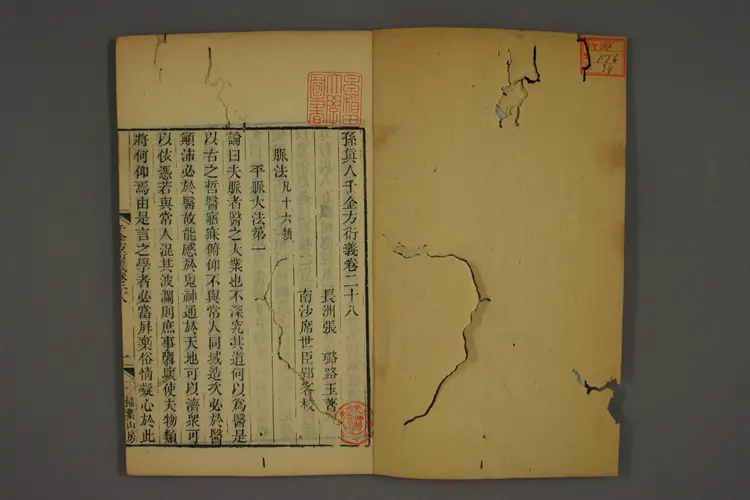 孫真人千金方衍義卷二十八
長洲張 璐路玉著
南沙席世臣郢客校
脈法凡十六類
平脈大法第一
論曰夫脈者醫之大業也不深究其道何以為醫是
以古之哲醫寤寐俯仰不與常人同域造次必於醫
顛沛必於醫故能感於鬼神通於天地可以濟衆可
以依憑若與常人混其波瀾則庶事隳壞使夫物類
將何仰焉由是言之學者必當屏棄俗情凝心於此
一
掃葉山房